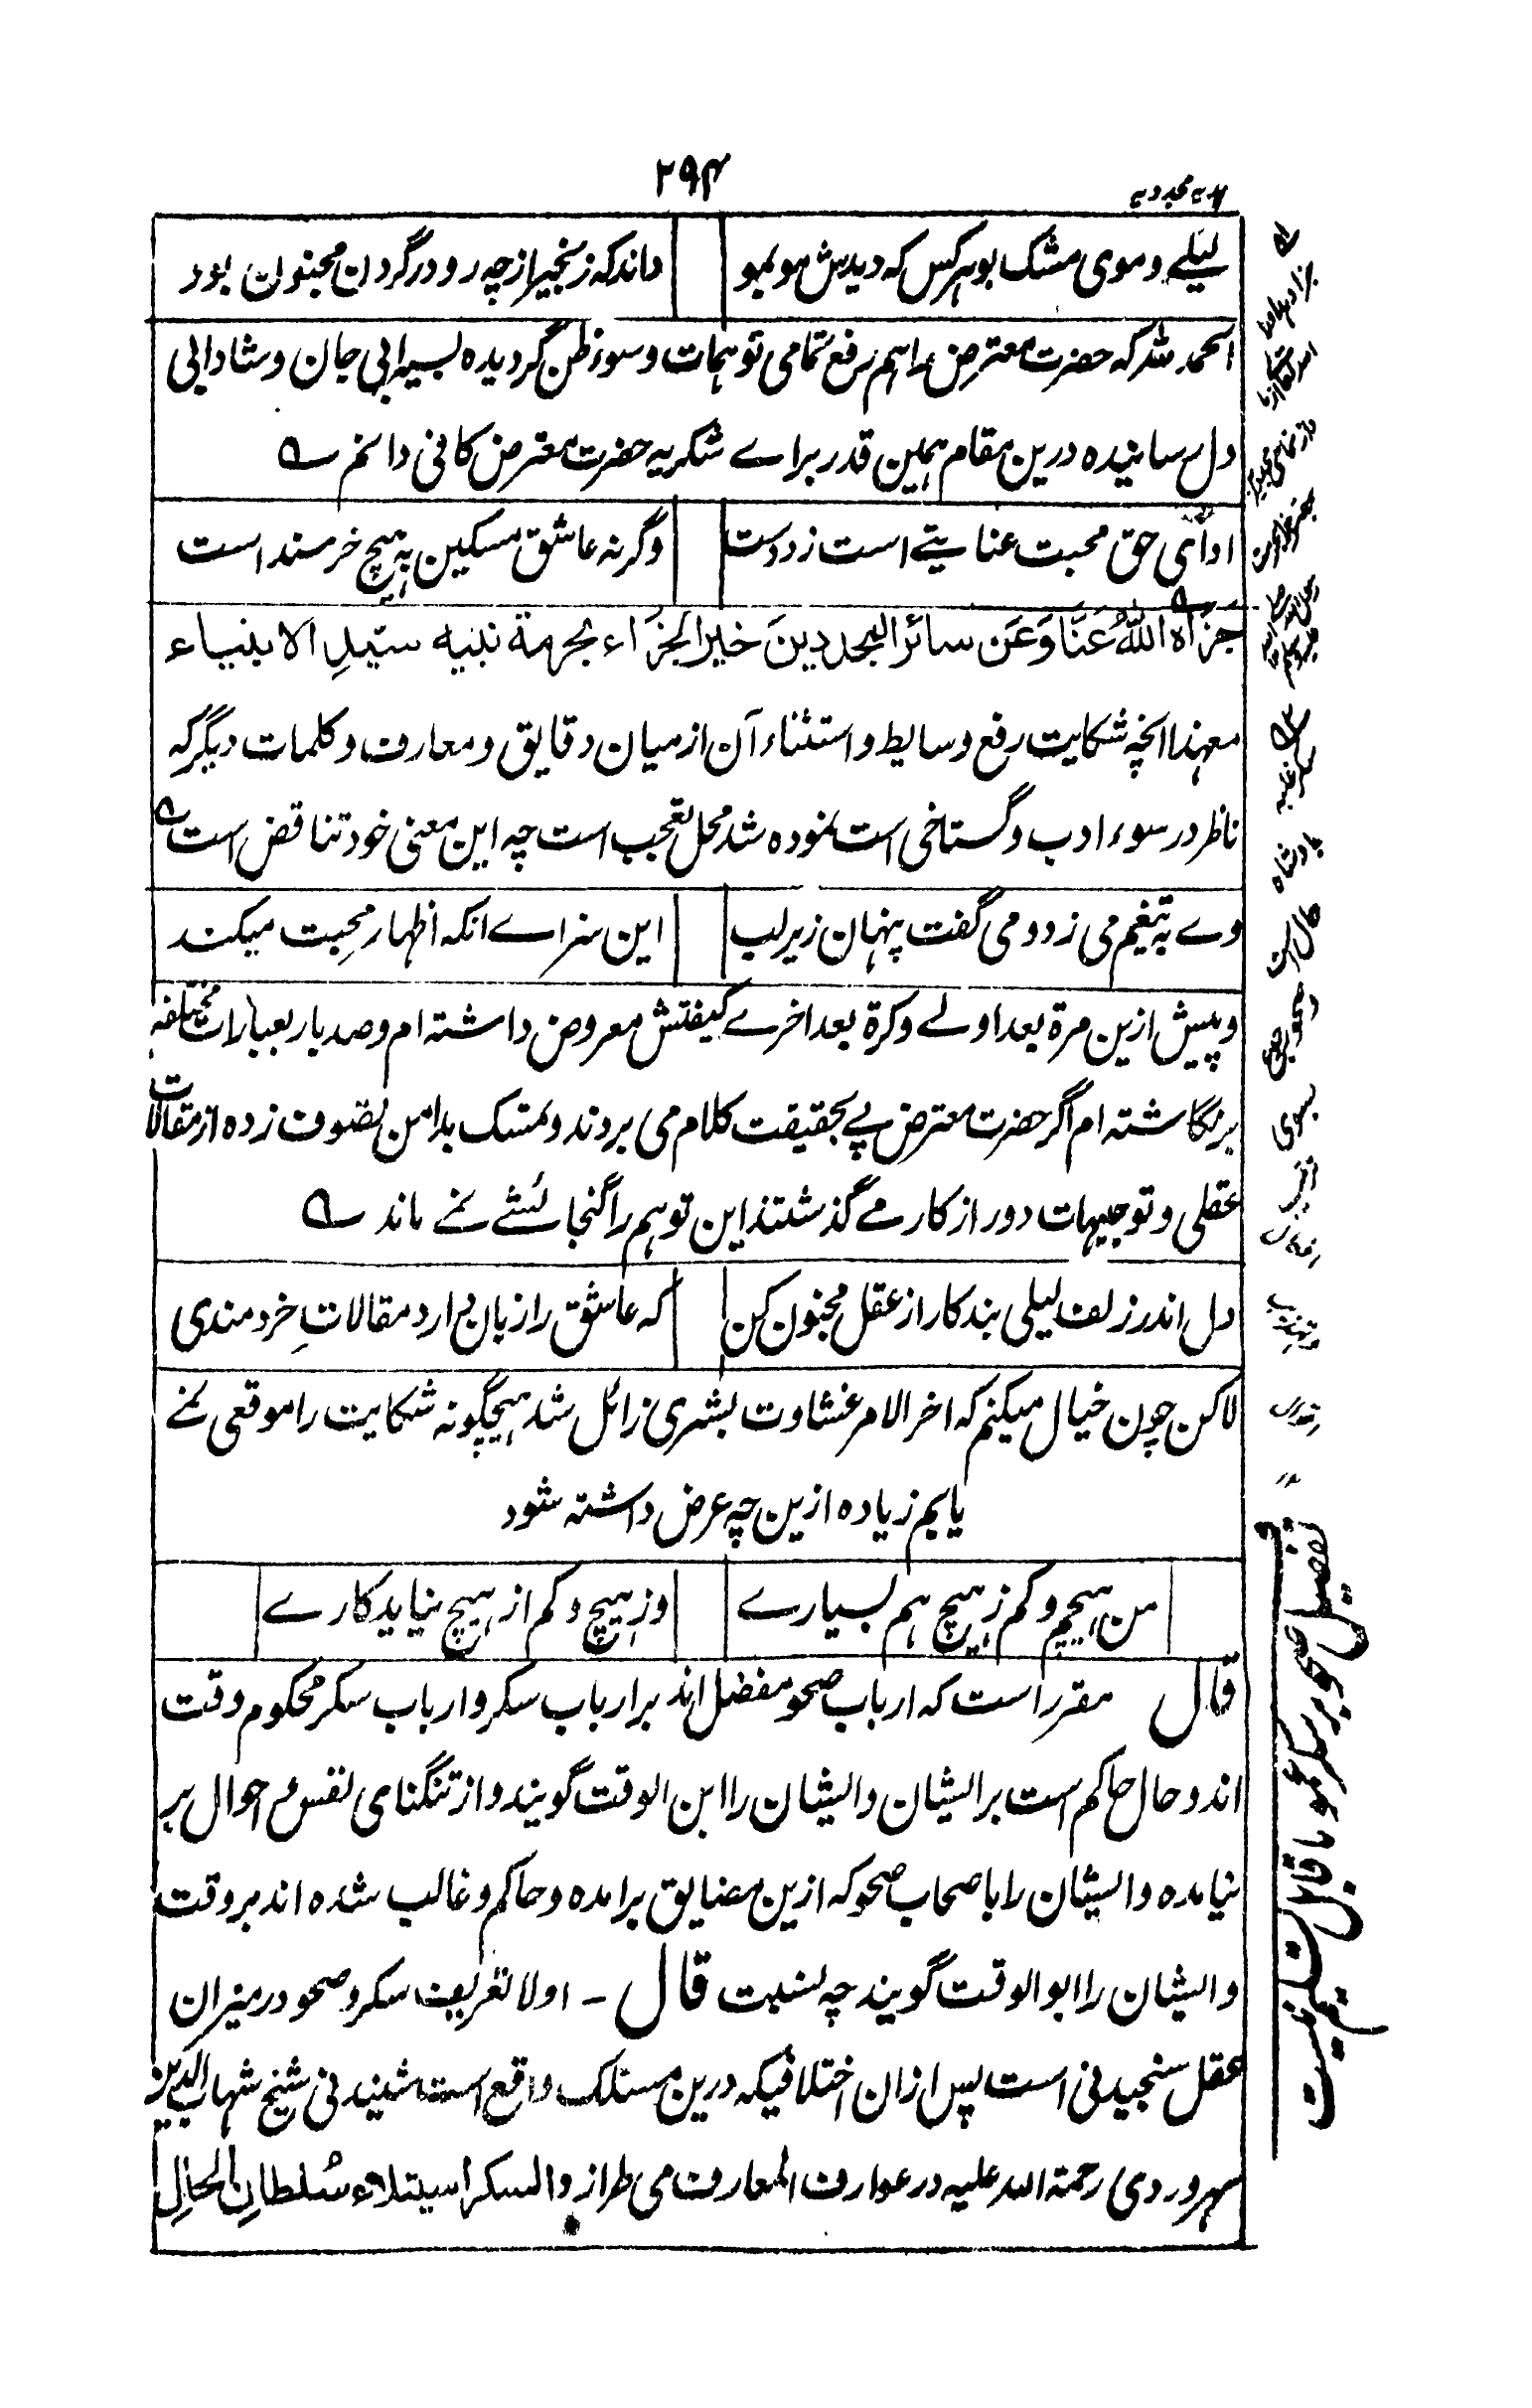 ۲۹۴
لیلے و موی مشک بو ہر کس کہ دیدش موبمو
داند کہ زنجیر از چہ رو در گردن مجنون بود
الحمد للہ کہ حضرت معترض را ہم رفع تمامی توہمات و سوء ظن گردیدہ بسیرابی جان و شادابی
دل رسانیدہ درین مقام ہمین قدر براے شکریہ حضرت معترض کافی دانم
ادای حق محبت عنایتے است ز دوست
وگرنہ عاشق مسکین بہ ہیچ خرسند است
جَزَاہُ اللّٰہُ عَنَّا وَعَن سائر المجددینَ خیر الجزَاء بحرمة نبیہ سیّدِ الانبیاء
معہذا انچہ شکایت رفع وسایط و استثناء آن از میان دقایق و معارف و کلمات دیگر کہ
ناظر در سوء ادب و گستاخی است نمودہ شد محل تعجب است چہ این معنی خود تناقض است
وے بہ تیغم می زد و می گفت پنہان زیر لب
این سزاے انکہ اظہار محبت میکند
و پیش ازین مرة بعد اولے و کرة بعد اخرے کیفتش معروض داشتہ ام و صد بار بعبارات مختلفہ
برنگاشتہ ام اگر حضرت معترض پے بحقیقت کلام می بردند و تمسک بدامن تصوف زدہ از مقالات
عقلی و توجیہات دور از کار مے گذشتند این توہم را گنجائشے نمے ماند
دل اندر زلف لیلی بند کار از عقل مجنون کن
کہ عاشق را زیان دارد مقالاتِ خردمندی
لاکن چون خیال میکنم کہ اخر الامر غشاوت بشری زائل شد ہیچگونہ شکایت را موقعی نمے
یابم زیادہ ازین چہ عرض داشتہ شود
من ہیچم و کم ز ہیچ ہم بسیارے
وز ہیچ و کم از ہیچ نیاید کارے
قال مقرر است کہ ارباب صحو مفضل اند بر ارباب سکر و ارباب سکر محکوم وقت
اند و حال حاکم است بر ایشان و ایشان را ابن الوقت گویند و از تنگنای نفس و احوال بر
نیامدہ و ایشان را باصحاب صحو کہ ازین مضایق برامدہ و حاکم و غالب شدہ اند بر وقت
و ایشان را ابو الوقت گویند چہ نسبت قال - اولا تعریف سکر و صحو در میزان
عقل سنجیدنی است پس ازان اختلافیکہ درین مسلک واقع است شنیدنی شیخ شہاب الدین
سہروردی رحمة اللہ علیہ در عوارف المعارف می طرازد و السکر استیلاء سُلطانِ الحالِ
تفضیل صحو بر سکر عموما قابل تسلیم نیست